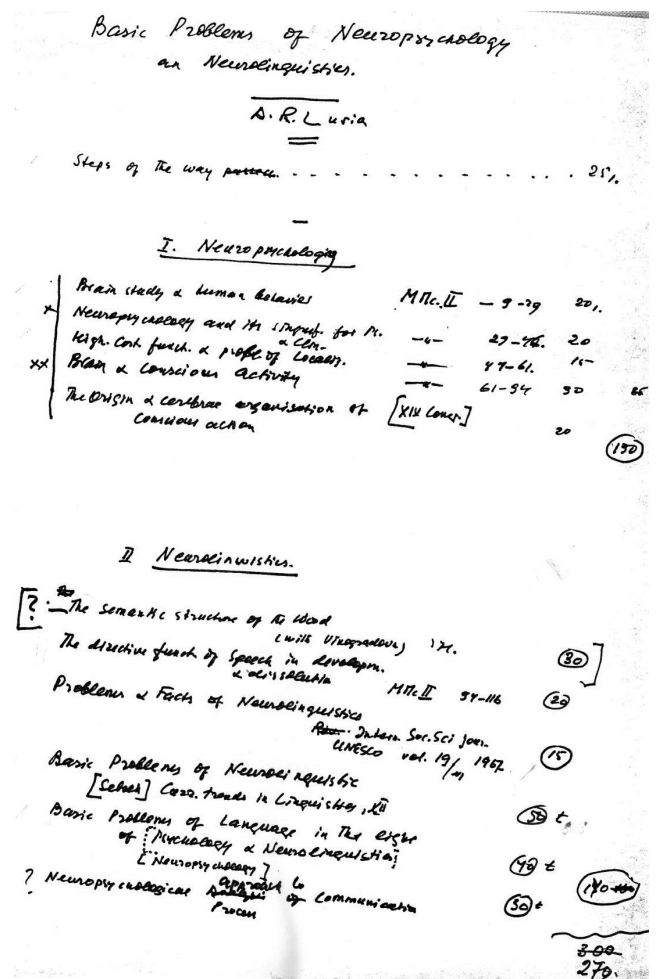 Basic Problems of Neuropsychology
an Neurolinguistics.
A.R. Luria
Steps of the way . . . . . . . . . . . . . . . 25
I. Neuropsychology
Brain study & human behavior МПс. II — 9-29 20
x Neuropsychology and its for Ps. —"— 29-46. 20
High. Cort. funct. & probl. of Localiz. —"— 47-61. 15
xx Brain & Conscious activity —"— 61-94 30
The Origin & cerebrae organisation of [XIX Congr.]
Conscious action 20
II Neurolinwistics.
[? — The semantic structure of the Word
(with Vinogradova) 30
The directive funct. of Speech in developm.
& dissolution МПс II 94-116 20
Problems & Facts of Neurolinguistics
Intern. Soc. Sci jour.
UNESCO vol. 19/ 1967 15
Basic Problems of Neurolinguistic
[Sebeok] Curr. trends in Linguistics, XII 50 t
Basic Problems of Language in the light
of Psychology & Neurolinguistics
[Neuropsychology] 40 t
? Neuropsychological approach to
of Communication
Process 30 t
140
300
270.